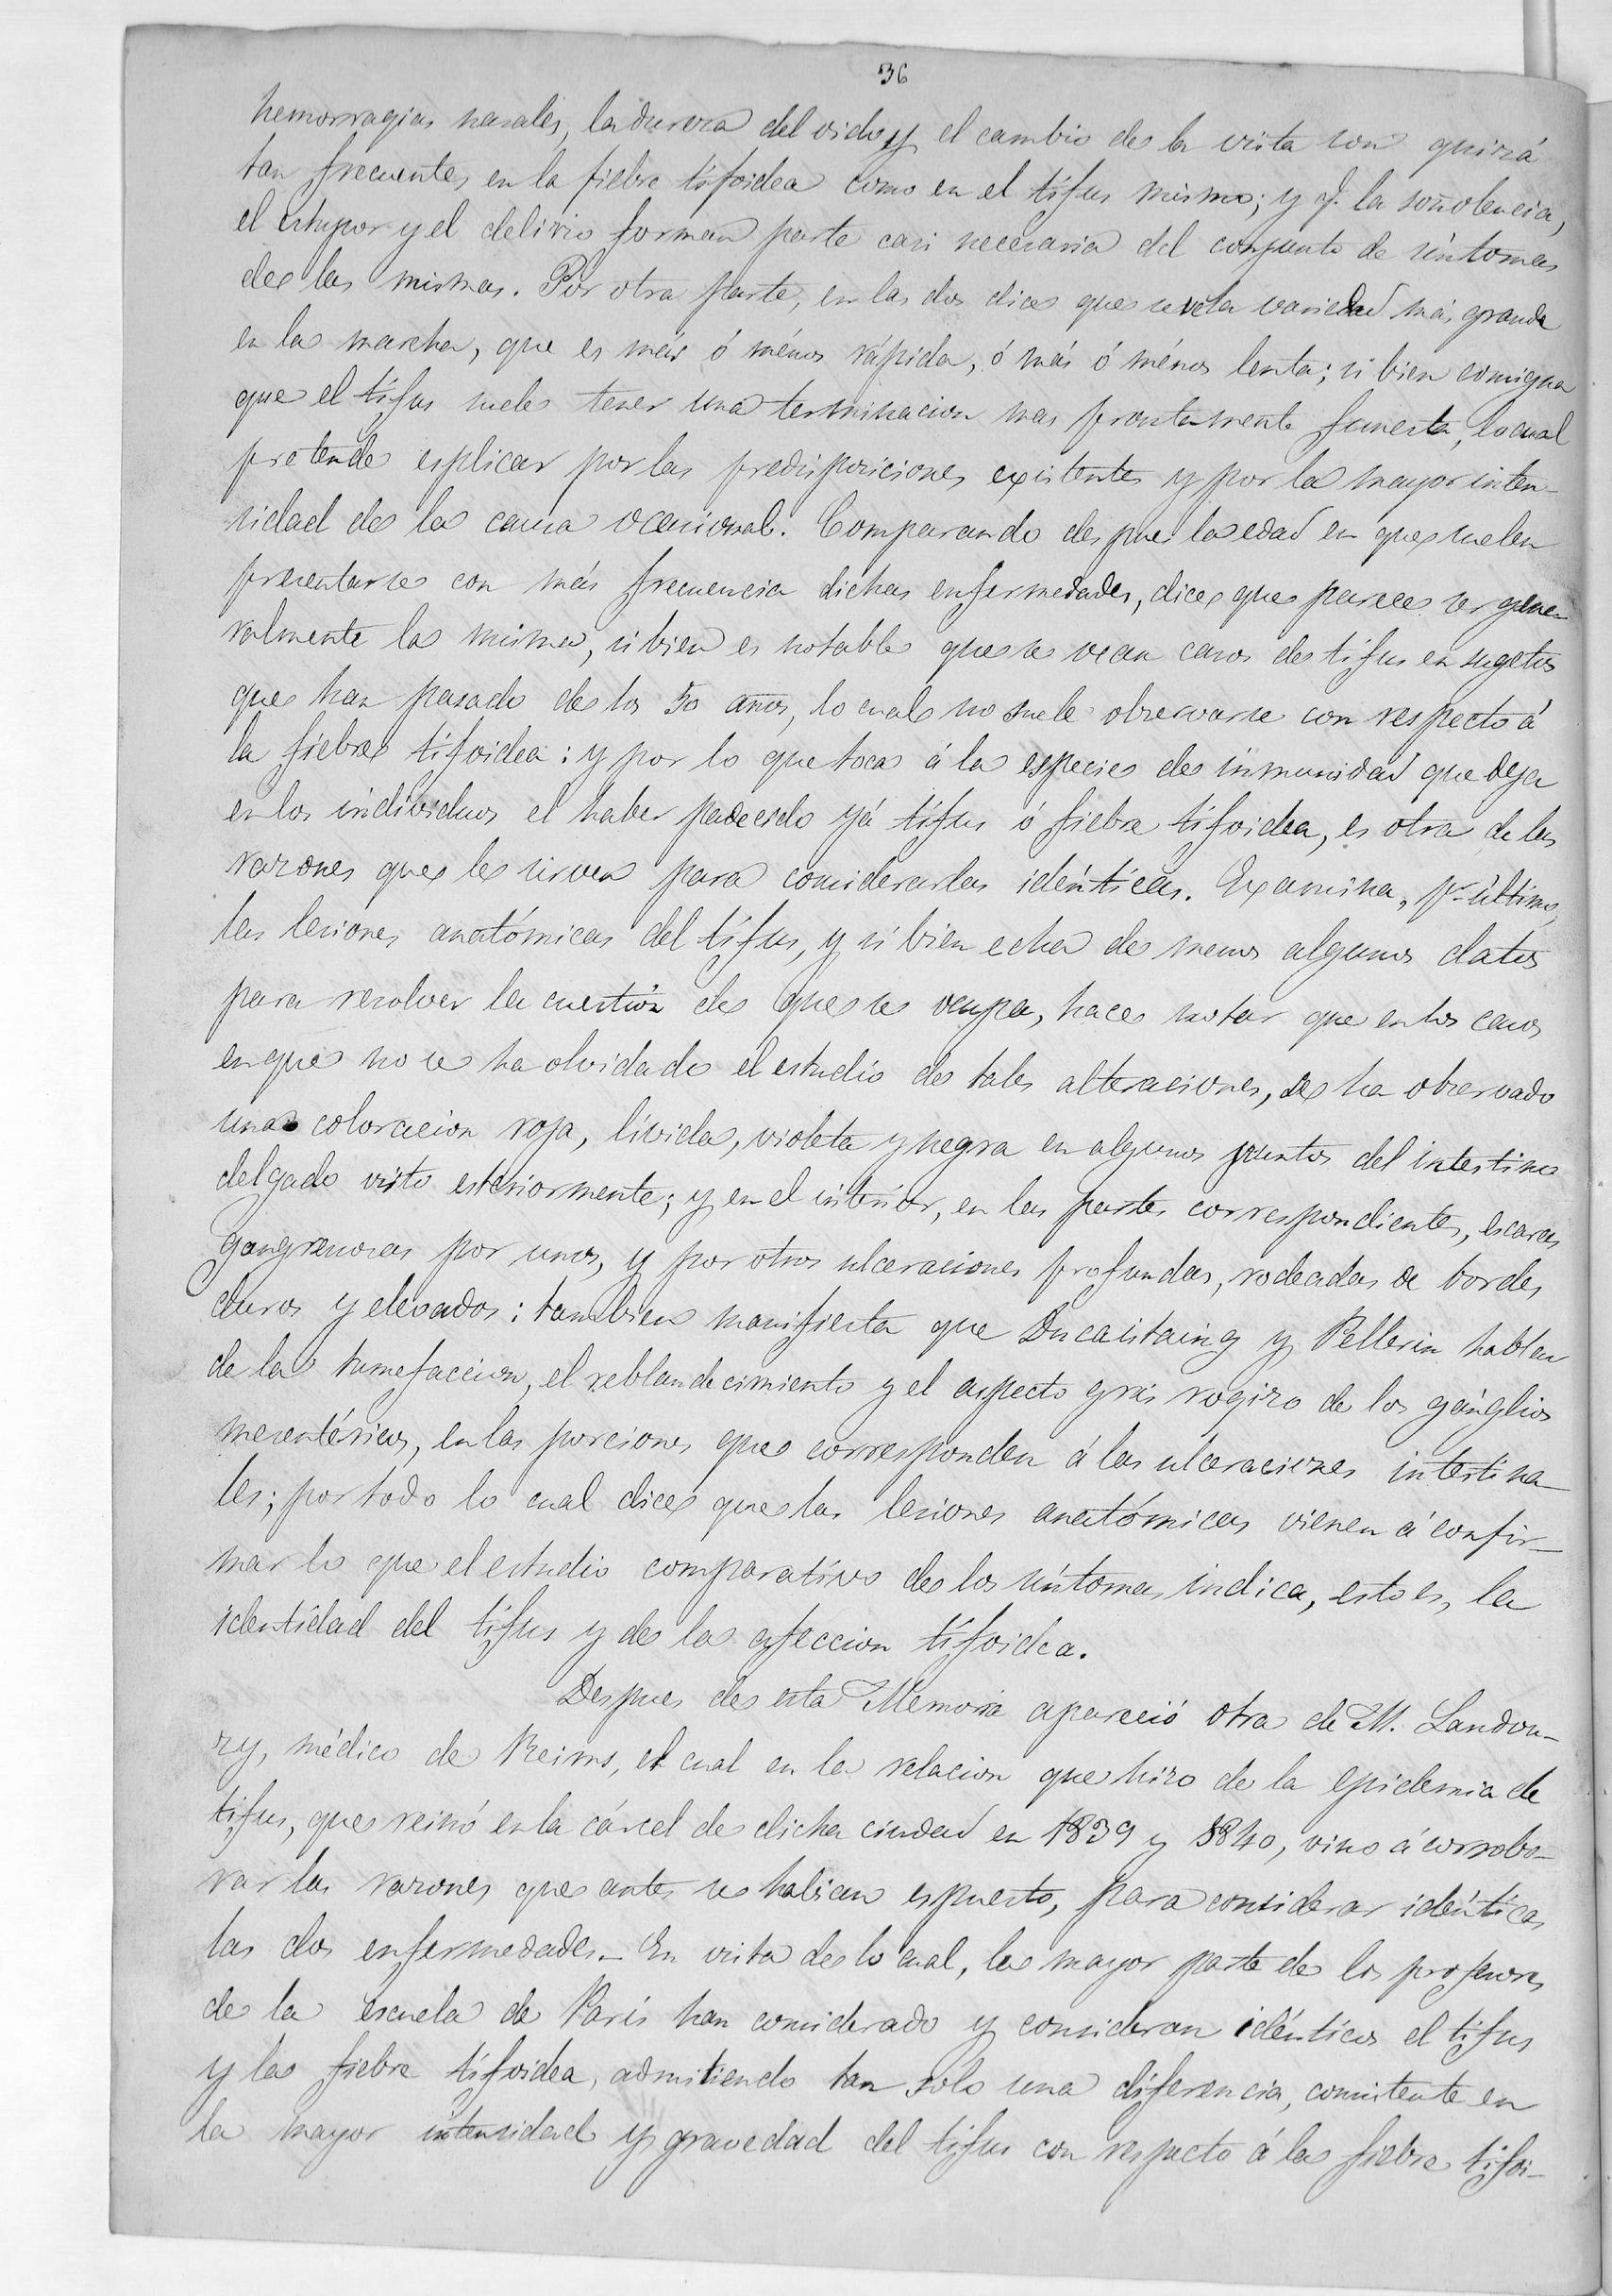 36
hemorragias nasales, la dureza del oido y el cambio de la vista son quizá
tan frecuentes en la fiebre tifoidea como en el tífus mismo; y q.e la soñolencia,
el estupor y el delirio forman parte casi necesaria del conjunto de síntomas
de las mismas. Por otra parte, en las dos dice que se nota variedad más grande
en la marcha, que es más ó ménos rápida, ó más ó ménos lenta; si bien consigna
que el tífus suele tener una terminacion mas prontamente funesta, lo cual
pretende esplicar por las predisposiciones existentes y por la mayor inten-
sidad de la causa ocasional. Comparando despues la edad en que suelen
presentarse con más frecuencia dichas enfermedades, dice que parece ser gene-
ralmente la misma, si bien es notable que se vean casos de tífus en sugetos
que han pasado de los 50 años, lo cual no suele observarse con respecto á
la fiebre tifoidea: y por lo que toca á la especie de inmunidad que deja
en los individuos el haber padecido yá tífus ó fiebre tifoidea, es otra de las
razones que le sirven para considerarlas idénticas. Examina, p.r último,
las lesiones anatómicas del tífus, y si bien echa de menos algunos datos
para resolver la cuestión de que se ocupa, hace notar que en los casos
en que no se ha olvidado el estudio de tales alteraciones, se ha observado
una coloracion roja, lívida, violeta y negra en algunos puntos del intestino
delgado visto esteriormente; y en el interior, en las partes correspondientes, escaras
gangrenosas por unos, y por otros ulceraciones profundas, rodeadas de bordes
duros y elevados: tambien manifiesta que Ducastaing y Pellerin hablan
de la tumefaccion, el reblandecimiento y el aspecto gris rogizo de los gánglios
mesentéricos, en las porciones que corresponden á las ulceraciones intestina-
les; por todo lo cual dice que las lesiones anatómicas vienen á confir-
mar lo que el estudio comparativo de los síntomas indica, esto es, la
identidad del tífus y de la afeccion tifoidea.
Despues de esta Memoria apareció otra de M. Landou-
zy, médico de Reims, el cual en la relacion que hizo de la epidemia de
tifus, que reinó en la cárcel de dicha ciudad en 1839 y 1840, vino á corrobo-
rar las razones que antes se habian espuesto, para considerar idénticas
las dos enfermedades.- En vista de lo cual, la mayor parte de los profesores
de la escuela de París han considerado y consideran idénticos el tifus
y la fiebre tifoidea, admitiendo tan sólo una diferencia, consistente en
la mayor intensidad y gravedad del tifus con respecto á la fiebre tifoi-